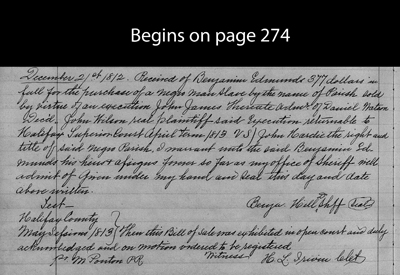 Begins on page 274
December 21st 1812. Recieved of Benjamin Edmunds 377 dollars in
full for the purchase of a Negro man Slave by the name of Parish sold
by virtue of an execution John James Executor of Daniel Watson
Decd. John Wilson real Plaintiff said Execution returnable to
Halifax Superior Court April term 1813 VS John Hardie the right and
title of said Negro Parish, I warrant unto the said Benjamin Ed-
munds his heirs & assigns forever so far as my office of Sheriff will
admit of Given under my hand and Seal this day and date
above written.
Test- Benja Hill Shff (Seal)
Halifax County
May Session 1813 } Then this Bill of Sale was exhibited in open court and duly
acknowledged and on motion ordered to be registered
M Ponton PR Witness H L Irwin Clk